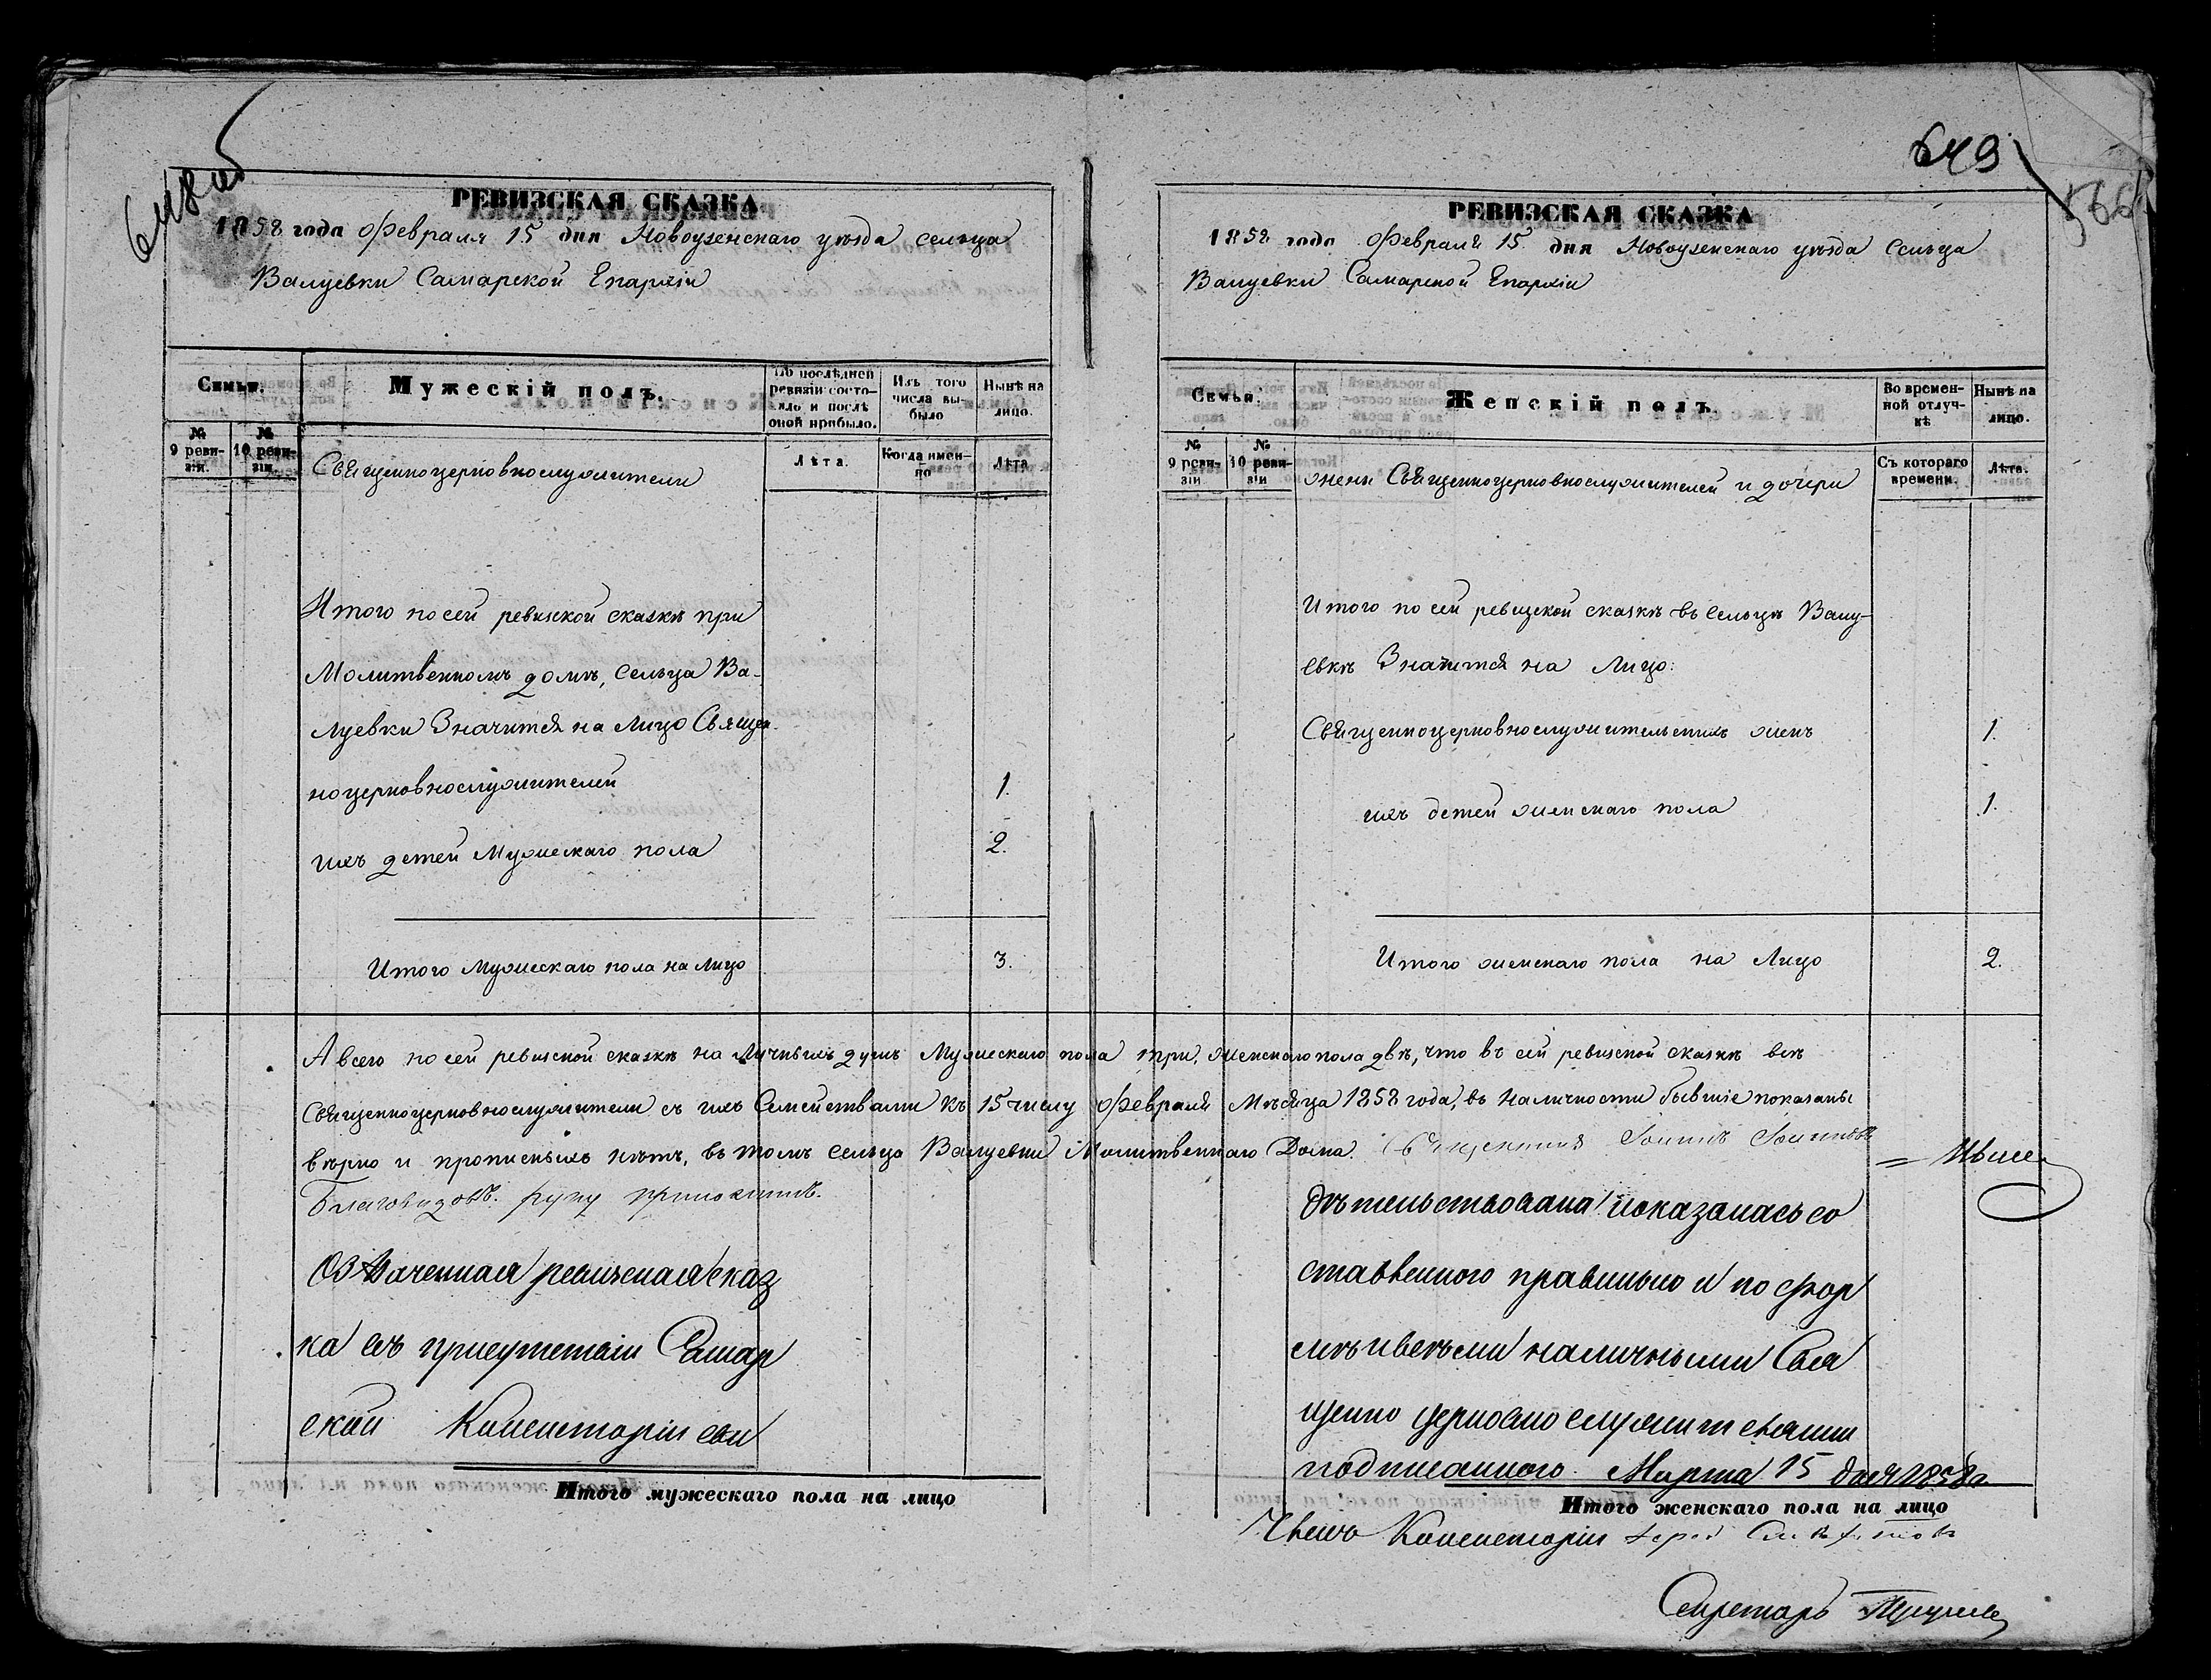 649
РЕВИЗСКАЯ СКАЗКА
1858 года Февраля 15 дня Новоузенскаго уѣзда сельца
Валуевки Самарской Епархіи
Семьи.
Мужескій полъ.
По послѣдней ревизіи состояло и послѣ оной прибыло.
Изъ того числа выбыло
Нынѣ на лицо.
№ 9 ревизіи.
№ 10 ревизіи.
Священноцерковнослужители
Лѣта.
Когда именно
Лѣта
Итого по сей ревизской сказкѣ при
Молитвенномъ домѣ, сельца Ва-
луевки Значится на лицо Священ-
ноцерковнослужителей 1.
ихъ детей Мужескаго пола 2.
Итого Мужескаго пола на Лицо 3.
РЕВИЗСКАЯ СКАЗКА
1858 года Февраля 15 дня Новоузенскаго уѣзда Сельца
Валуевки Самарской Епархіи
Семьи.
Женскій полъ.
Во временной отлучкѣ
Нынѣ на лицо.
№ 9 ревизіи
№ 10 ревизіи
жены Священноцерковнослужителей и дочери
Съ котораго времени.
Лѣта.
Итого по сей ревизской сказкѣ въ Сельцѣ Валу-
евкѣ Значится на Лицо:
Священноцерковнослужительскихъ женъ 1.
ихъ детей женскаго пола 1.
Итого женскаго пола на Лицо 2.
А всего по сей ревизской сказкѣ на Личныхъ душъ Мужескаго пола три, женскаго пола двѣ, что въ сей ревизской сказкѣ всѣ
Священноцерковнослужители съ ихъ Семействами къ 15 числу Февраля Мѣсяца 1858 года, въ Наличности бывшіе показаны
вѣрно и прописныхъ нѣтъ, въ томъ Сельца Валуевки Молитвеннаго Дома. Священникъ Іоаннъ Іоанновъ
Благовидовъ. руку приложилъ.
Означенная ревизская сказ
ка въ присутствіи Самар
ской Консисторіи сви
Итого мужескаго пола на лицо
дѣтельствована показалась со
ставленною правильно и по фор
мѣ и всѣми наличными Свя
щенно церковно служителями
подписанною. Марта 15 дня 1858 г
Итого женскаго пола на лицо
Членъ Консисторіи
Секретарь